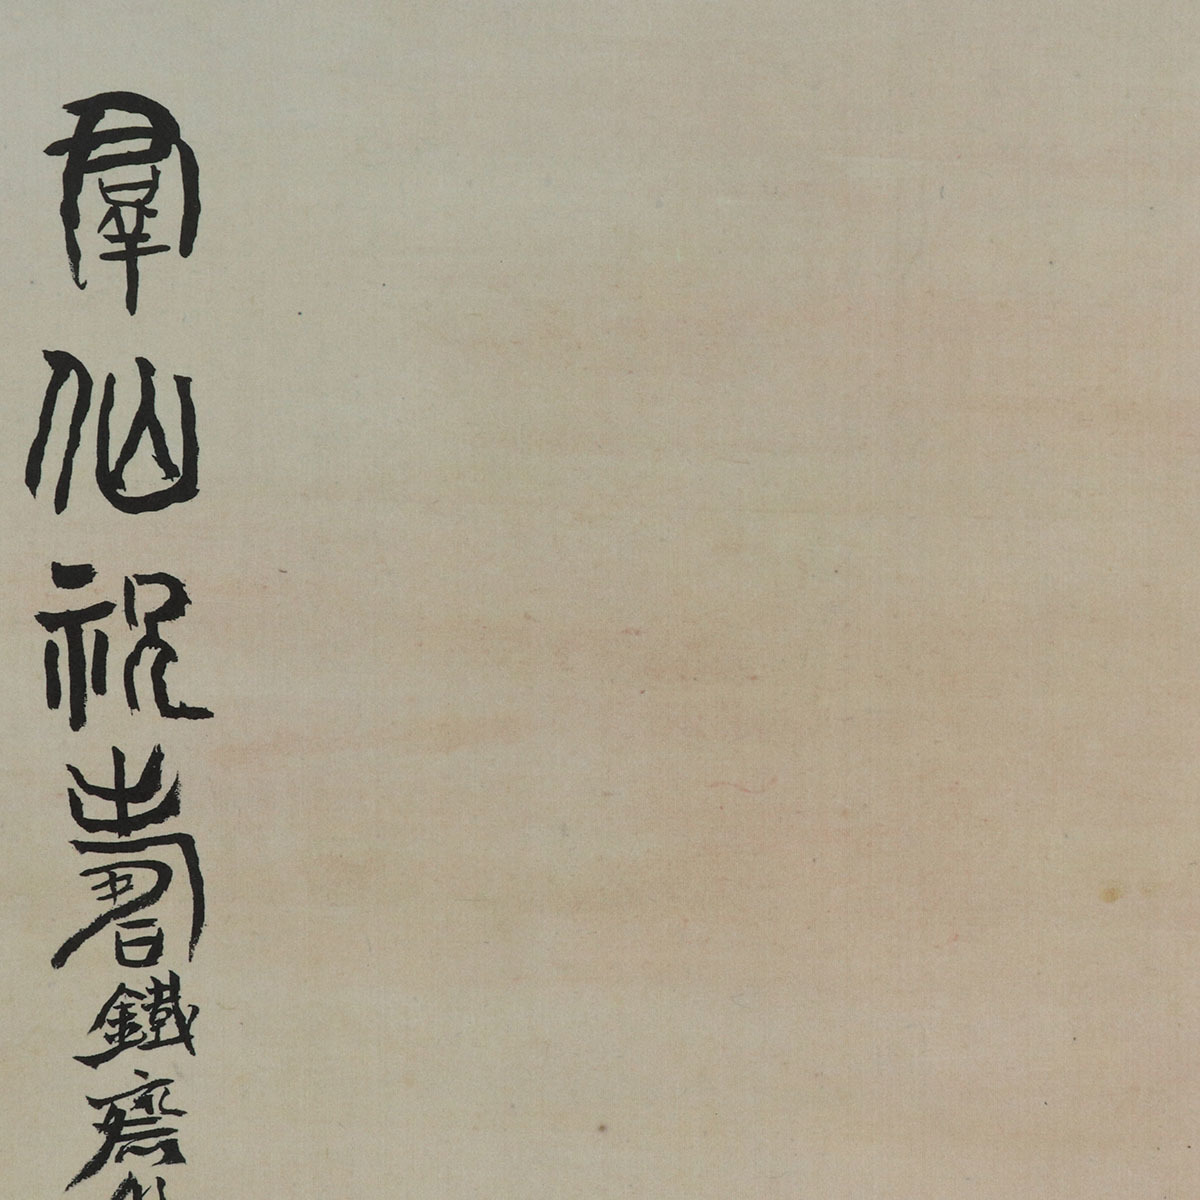 羣仙祝壽鐵齋